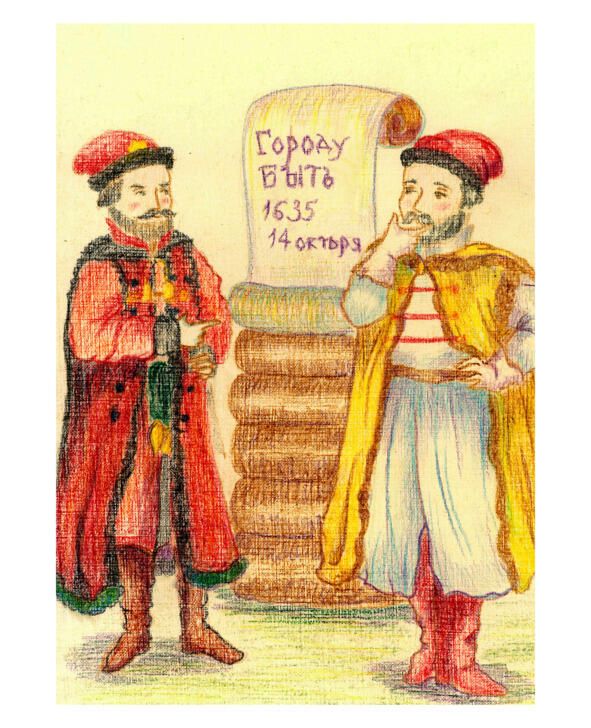 Городу
Быть
1635
14 октября